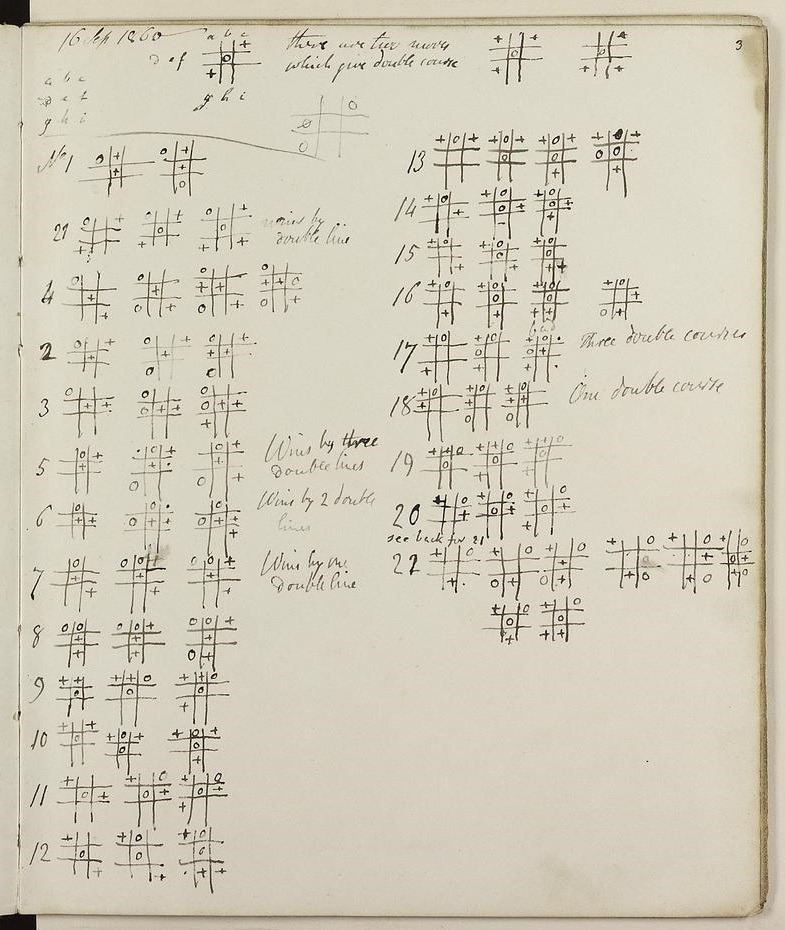 16 Sep 1860
a b c
d e f
g h i
there are two moves
which give double course
3
a b c
d e f
g h i
No 1
21
wins by
double line
4
2
3
5
Wins by three
double lines
6
Wins by 2 double
lines
7
Wins by one
double line
8
9
10
11
12
13
14
15
16
17
three double courses
18
One double course
19
20
see back for 21
22